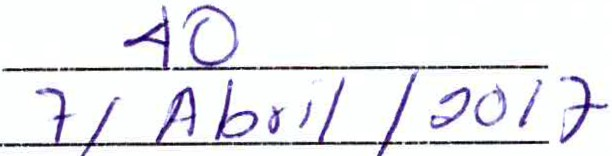 40
7/ Abril / 2017